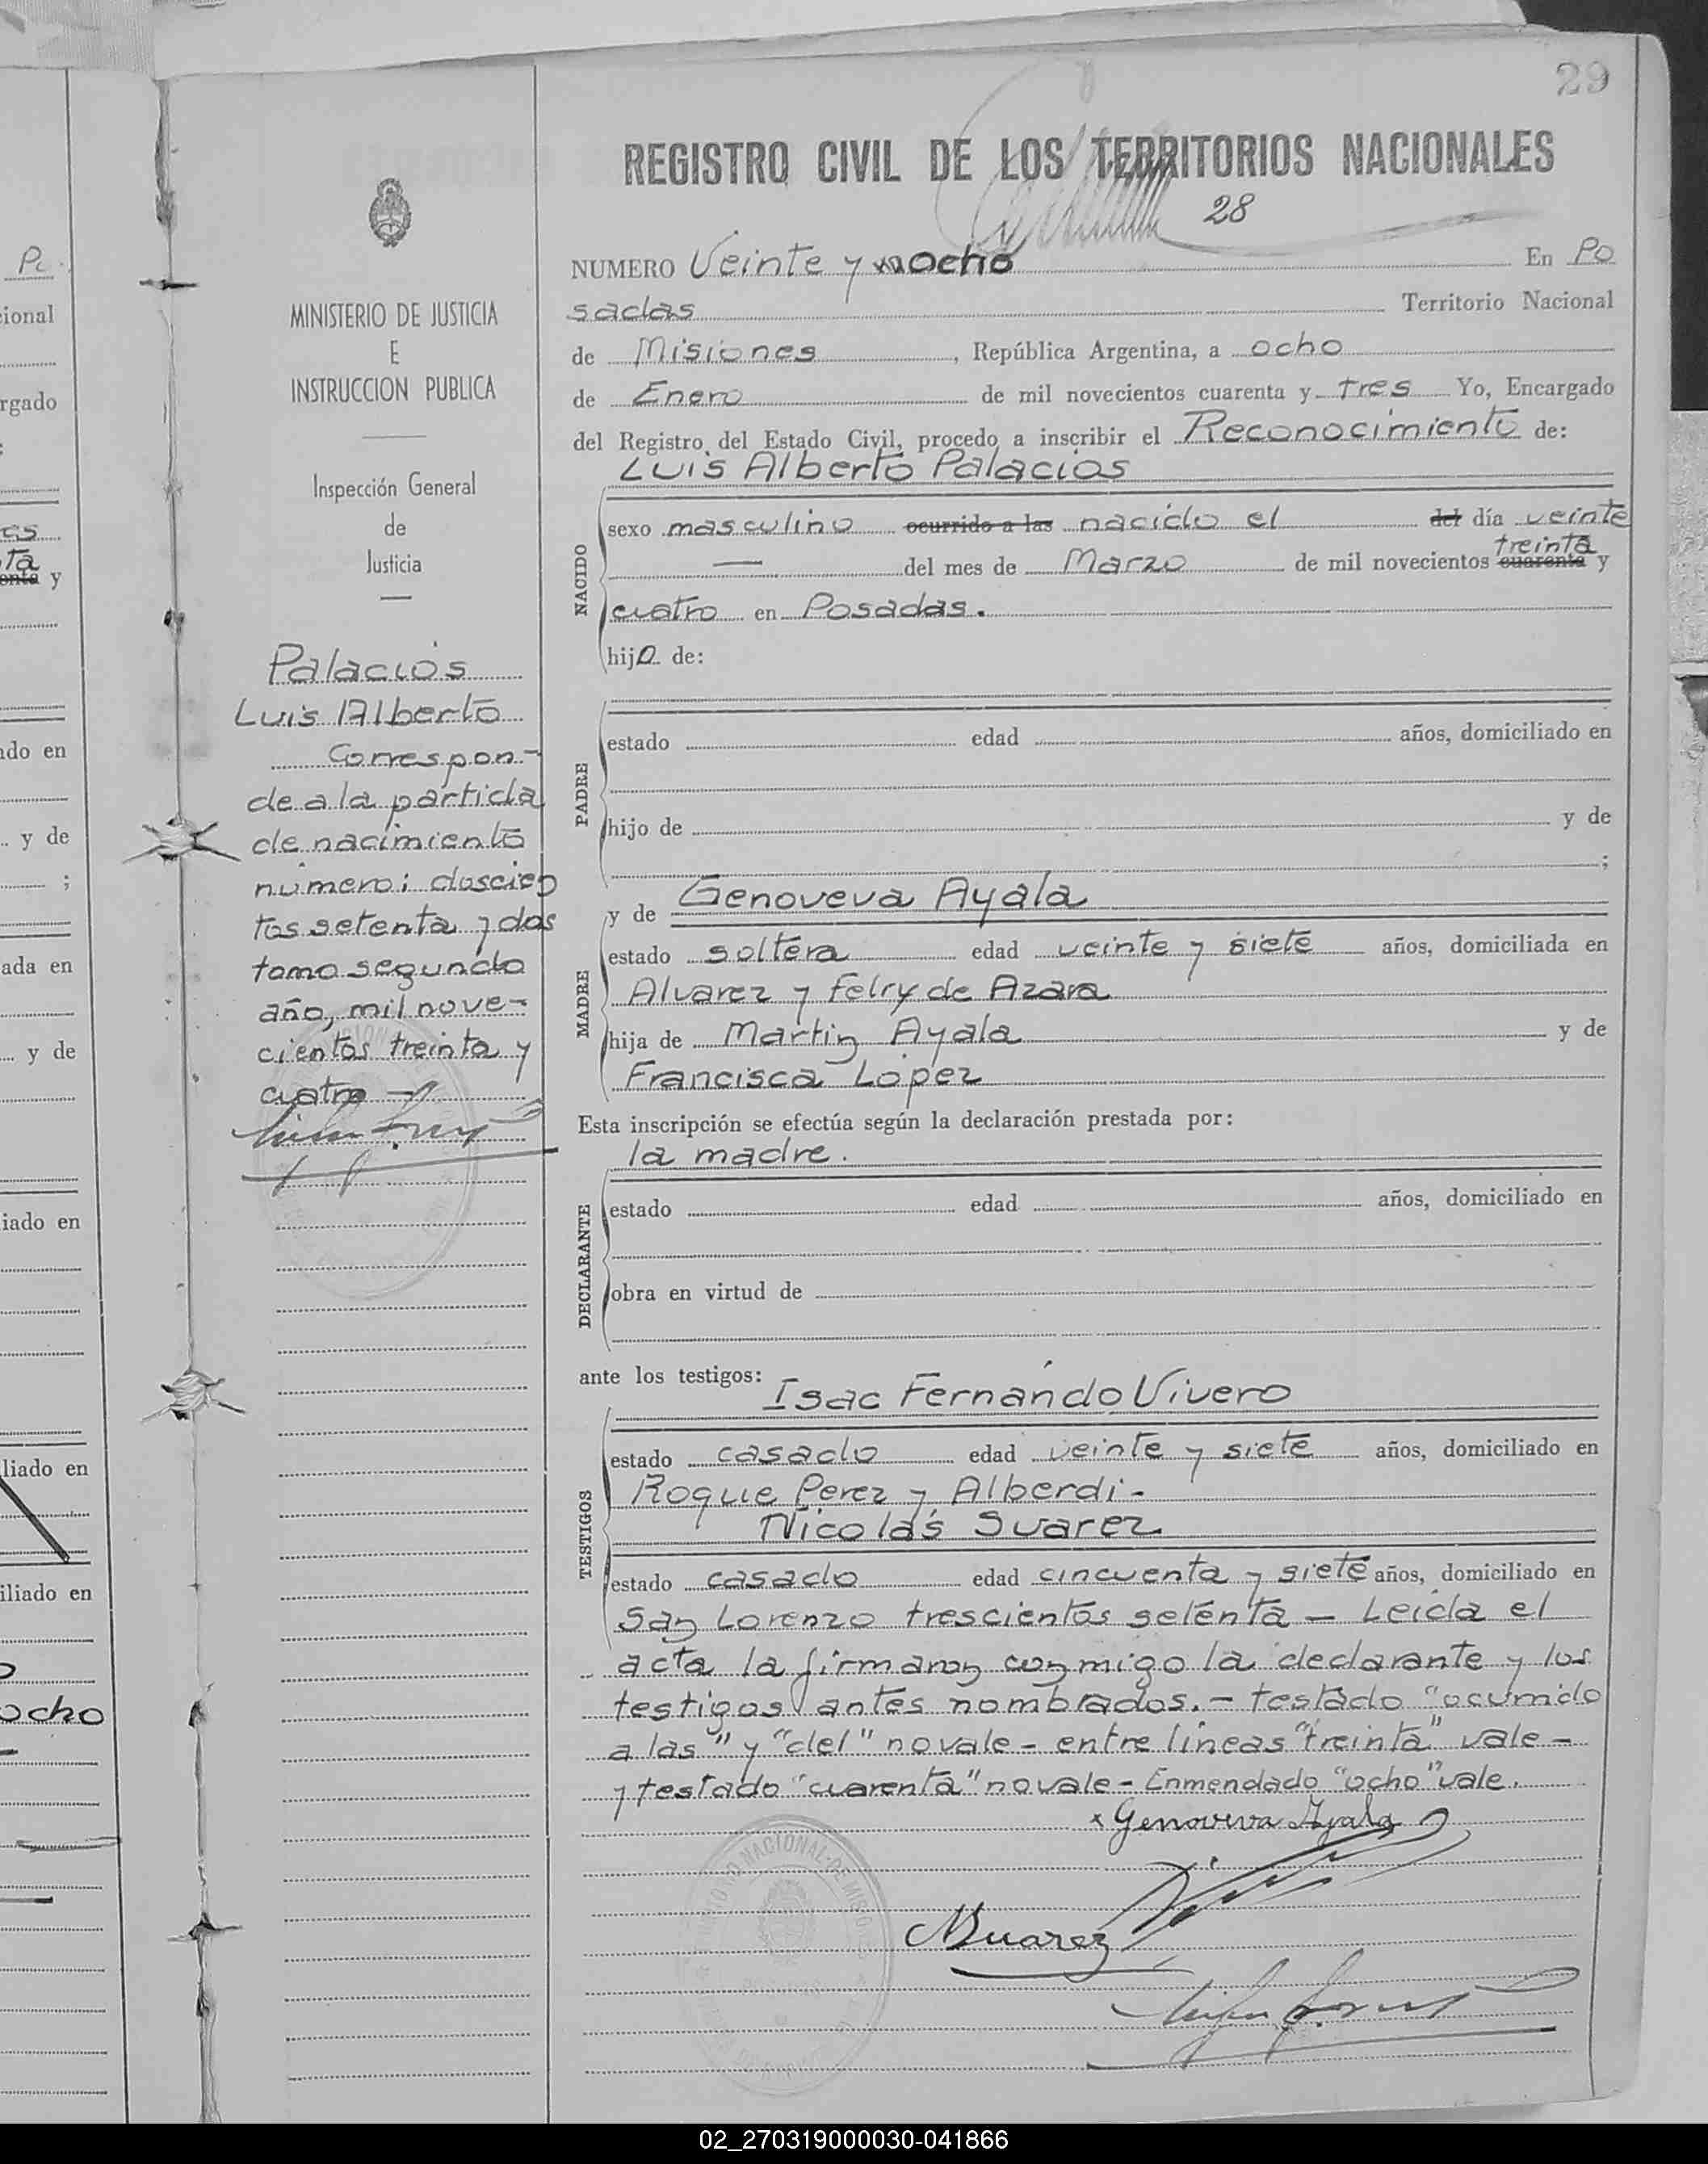 29
REGISTRO CIVIL DE LOS TERRITORIOS NACIONALES
28
NUMERO Veinte y ocho En Po
sadas Territorio Nacional
de Misiones, República Argentina, a ocho
de Enero de mil novecientos cuarenta y tres Yo, Encargado
del Registro del Estado Civil, procedo a inscribir el Reconocimiento de:
Luis Alberto Palacios
NACIDO
sexo masculino ocurrido a las nacido el del día veinte
— del mes de Marzo de mil novecientos cuarenta treinta y
cuatro en Posadas.
hijo de:
PADRE
estado edad años, domiciliado en
hijo de y de
;
MADRE
y de Genoveva Ayala
estado soltera edad veinte y siete años, domiciliada en
Alvarez y Felix de Azara
hija de Martin Ayala y de
Francisca López
Esta inscripción se efectúa según la declaración prestada por:
la madre.
DECLARANTE
estado edad años, domiciliado en
obra en virtud de
ante los testigos:
TESTIGOS
Isac Fernándo Vivero
estado casado edad veinte y siete años, domiciliado en
Roque Perez y Alberdi -
Nicolás Suarez
estado casado edad cincuenta y siete años, domiciliado en
San Lorenzo trescientos setenta — Leida el
acta la firmaron conmigo la declarante y los
testigos antes nombrados. - testado "ocurrido
a las" y "del" no vale - entre lineas "treinta" vale -
y testado "cuarenta" no vale - Enmendado "ocho" vale.
x Genoveva Ayala
NSuarez
MINISTERIO DE JUSTICIA
E
INSTRUCCION PUBLICA
Inspección General
de
Justicia
Palacios
Luis Alberto
Correspon-
de a la partida
de nacimiento
número: doscien
tos setenta y dos
tomo segundo
año, mil nove-
cientos treinta y
cuatro
Po
cional
rgado
:
es
ta
enta y
ado en
y de
;
ada en
y de
iado en
liado en
iliado en
ocho
02_270319000030-041866